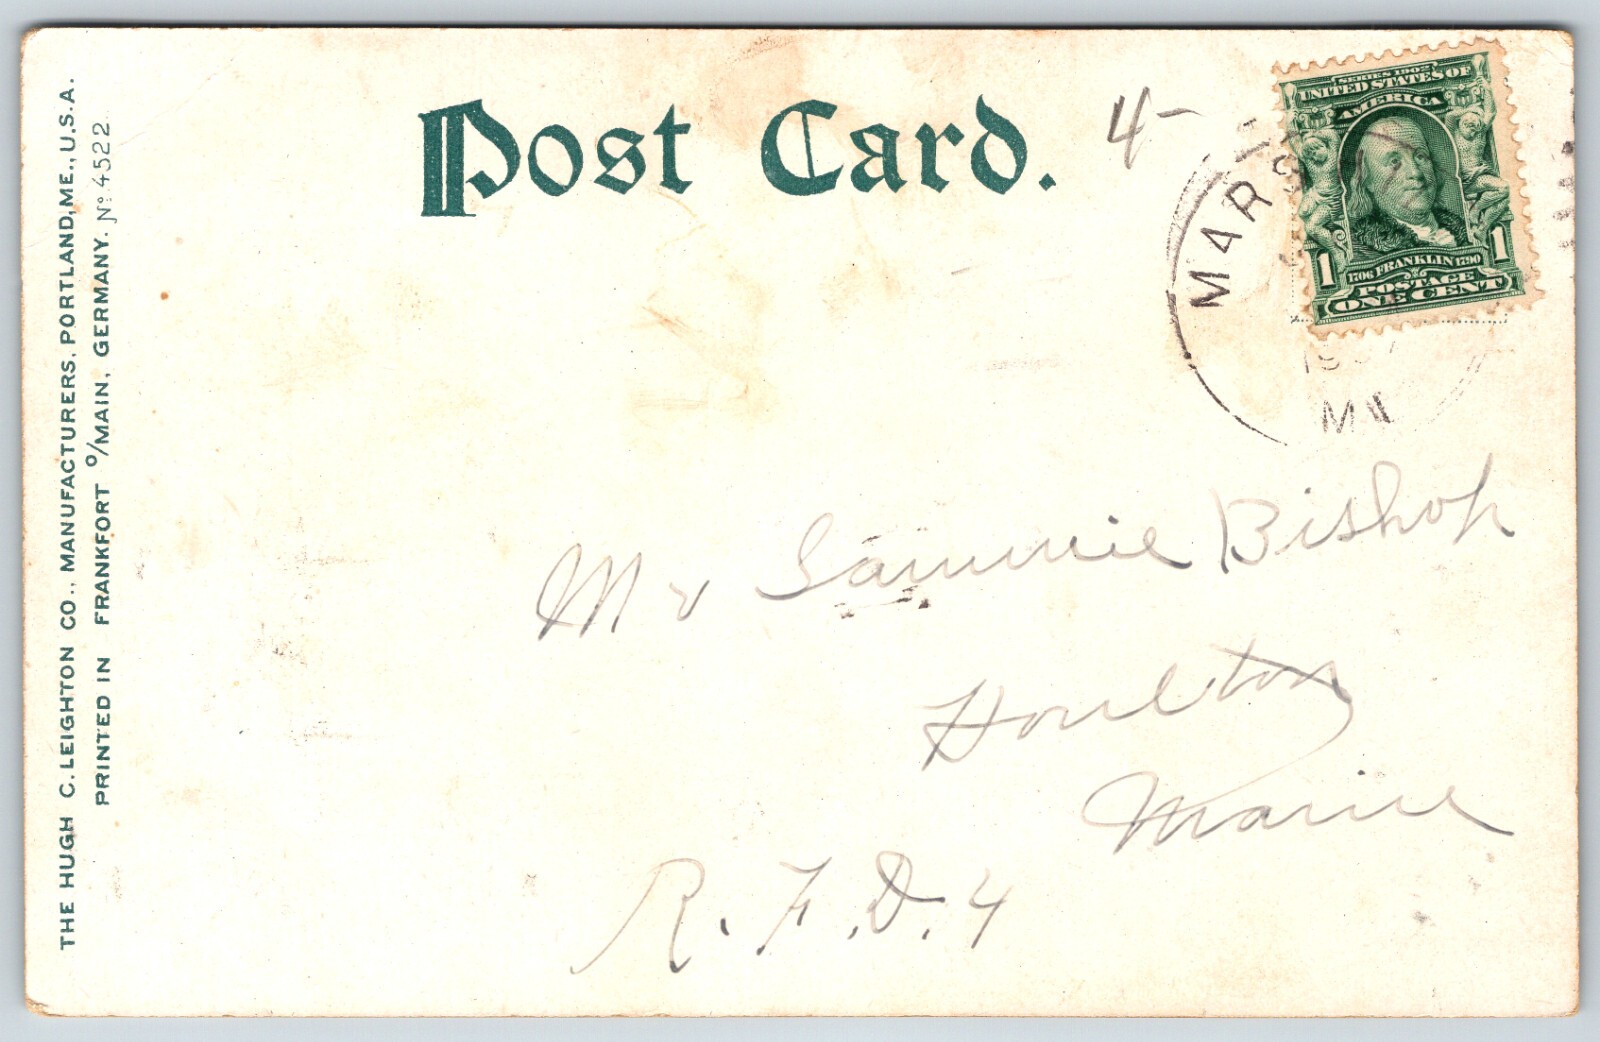 Post Card.
4-
SERIES 1902
UNITED STATES OF
AMERICA
1 1706 FRANKLIN 1790 1
POSTAGE
ONE CENT
MARS
1907
Mr Sammie Bishop
Houlton
Maine
R.F.D. 4
THE HUGH C. LEIGHTON CO., MANUFACTURERS, PORTLAND, ME., U.S.A.
PRINTED IN FRANKFORT o/MAIN, GERMANY. No 4522